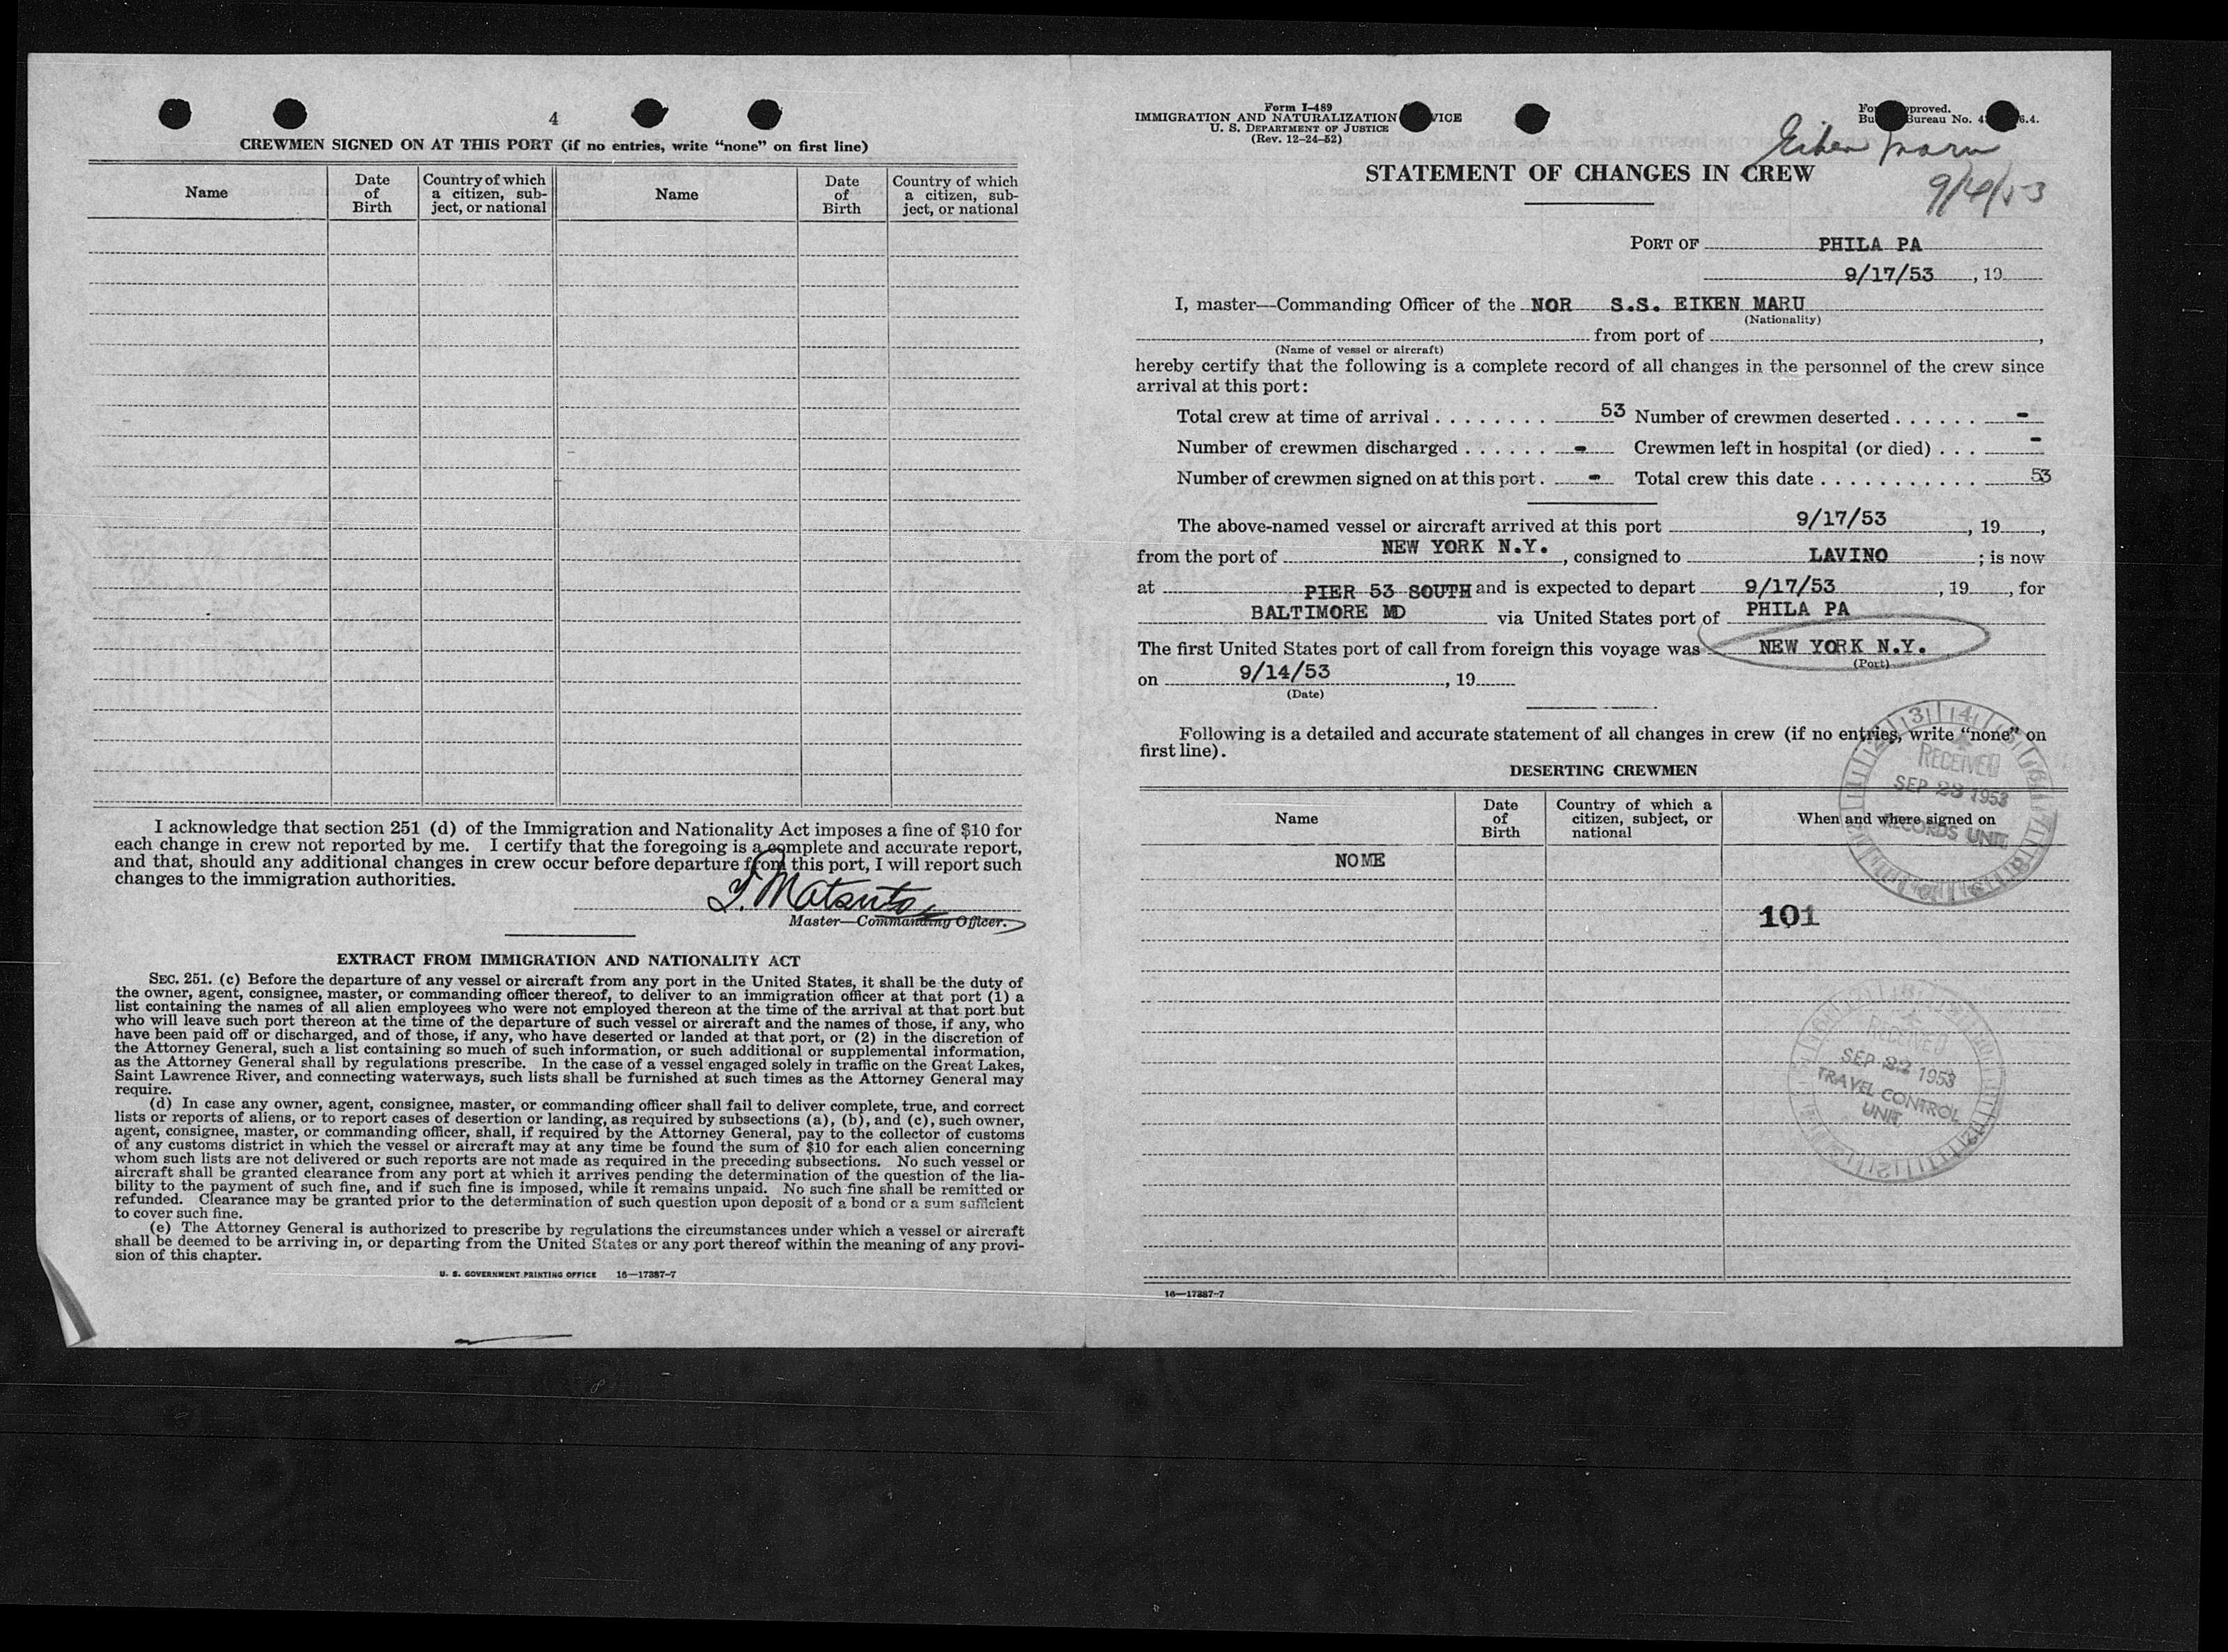 4
CREWMEN SIGNED ON AT THIS PORT (if no entries, write “none” on first line)
Name
Date of Birth
Country of which a citizen, subject, or national
Name
Date of Birth
Country of which a citizen, subject, or national
I acknowledge that section 251 (d) of the Immigration and Nationality Act imposes a fine of $10 for
each change in crew not reported by me. I certify that the foregoing is a complete and accurate report,
and that, should any additional changes in crew occur before departure from this port, I will report such
changes to the immigration authorities.
Master—Commanding Officer.
EXTRACT FROM IMMIGRATION AND NATIONALITY ACT
SEC. 251. (c) Before the departure of any vessel or aircraft from any port in the United States, it shall be the duty of
the owner, agent, consignee, master, or commanding officer thereof, to deliver to an immigration officer at that port (1) a
list containing the names of all alien employees who were not employed thereon at the time of the arrival at that port but
who will leave such port thereon at the time of the departure of such vessel or aircraft and the names of those, if any, who
have been paid off or discharged, and of those, if any, who have deserted or landed at that port, or (2) in the discretion of
the Attorney General, such a list containing so much of such information, or such additional or supplemental information,
as the Attorney General shall by regulations prescribe. In the case of a vessel engaged solely in traffic on the Great Lakes,
Saint Lawrence River, and connecting waterways, such lists shall be furnished at such times as the Attorney General may
require.
(d) In case any owner, agent, consignee, master, or commanding officer shall fail to deliver complete, true, and correct
lists or reports of aliens, or to report cases of desertion or landing, as required by subsections (a), (b), and (c), such owner,
agent, consignee, master, or commanding officer, shall, if required by the Attorney General, pay to the collector of customs
of any customs district in which the vessel or aircraft may at any time be found the sum of $10 for each alien concerning
whom such lists are not delivered or such reports are not made as required in the preceding subsections. No such vessel or
aircraft shall be granted clearance from any port at which it arrives pending the determination of the question of the lia-
bility to the payment of such fine, and if such fine is imposed, while it remains unpaid. No such fine shall be remitted or
refunded. Clearance may be granted prior to the determination of such question upon deposit of a bond or a sum sufficient
to cover such fine.
(e) The Attorney General is authorized to prescribe by regulations the circumstances under which a vessel or aircraft
shall be deemed to be arriving in, or departing from the United States or any port thereof within the meaning of any provi-
sion of this chapter.
U. S. GOVERNMENT PRINTING OFFICE 16—17387-7
Form I-489
IMMIGRATION AND NATURALIZATION
U. S. DEPARTMENT OF JUSTICE
(Rev. 12-24-52)
Bureau No.
Eiken Maru
STATEMENT OF CHANGES IN CREW
PORT OF PHILA PA
9/17/53, 19
I, master—Commanding Officer of the NOR S.S. EIKEN MARU
(Nationality)
from port of ,
(Name of vessel or aircraft)
hereby certify that the following is a complete record of all changes in the personnel of the crew since
arrival at this port:
Total crew at time of arrival 53 Number of crewmen deserted -
Number of crewmen discharged - Crewmen left in hospital (or died) -
Number of crewmen signed on at this port - Total crew this date 53
The above-named vessel or aircraft arrived at this port 9/17/53, 19,
from the port of NEW YORK N.Y., consigned to LAVINO; is now
at PIER 53 SOUTH and is expected to depart 9/17/53, 19, for
BALTIMORE MD via United States port of PHILA PA
The first United States port of call from foreign this voyage was NEW YORK N.Y.
(Port)
on 9/14/53, 19
(Date)
Following is a detailed and accurate statement of all changes in crew (if no entries, write “none” on
first line).
RECEIVED
SEP 23 1953
RECORDS UNIT
DESERTING CREWMEN
Name
Date of Birth
Country of which a citizen, subject, or national
When and where signed on
NOME
101
RECEIVED
SEP 22 1953
TRAVEL CONTROL
UNIT
16—17387-7